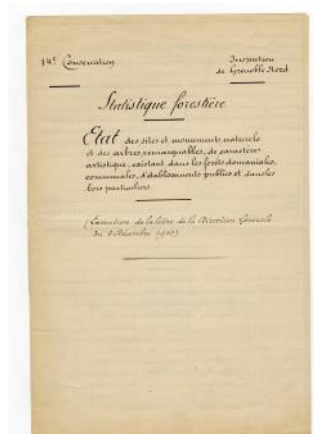 14e Conservation
Inspection
de Grenoble Nord
Statistique forestière
Etat des sites et monuments naturels
et des arbres remarquables, de caractère
artistique, existant dans les forêts domaniales,
communales, d'établissements publics et dans les
bois particuliers.
(Exécution de la lettre de la Direction Générale
du Décembre